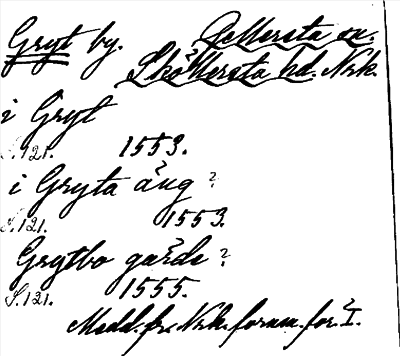 Gryt by. Gällersta sn.
Sköllersta hd. Nrk.
i Gryt
S.121. 1553.
i Gryta äng ?
S.121. 1553.
Grytbo gärde ?
S.121. 1555.
Medd. fr. Nrk. fornm. för. I.